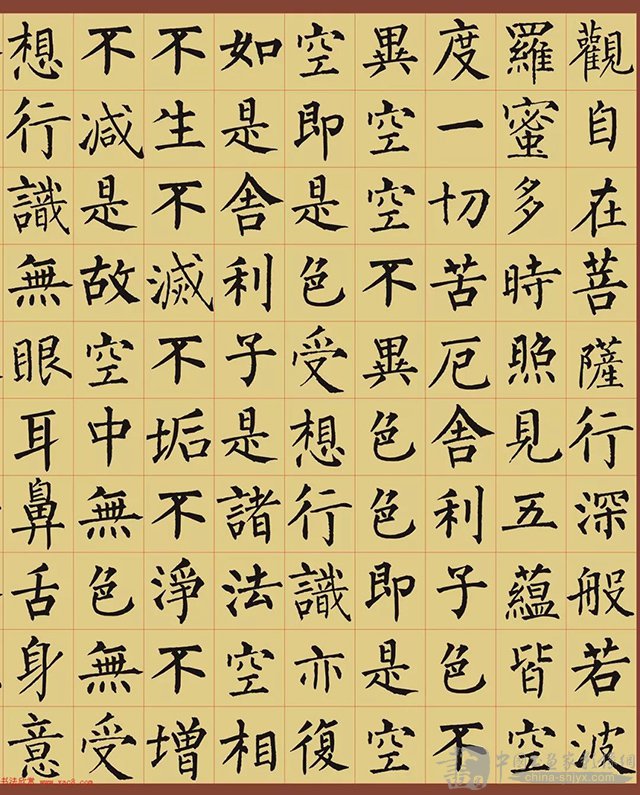 觀自在菩薩行深般若波
羅蜜多時照見五蘊皆空
度一切苦厄舍利子色不
異空空不異色色即是空
空即是色受想行識亦復
如是舍利子是諸法空相
不生不滅不垢不淨不增
不減是故空中無色無受
想行識無眼耳鼻舌身意
书法欣赏 www.yac8.com
china-snjyx.com